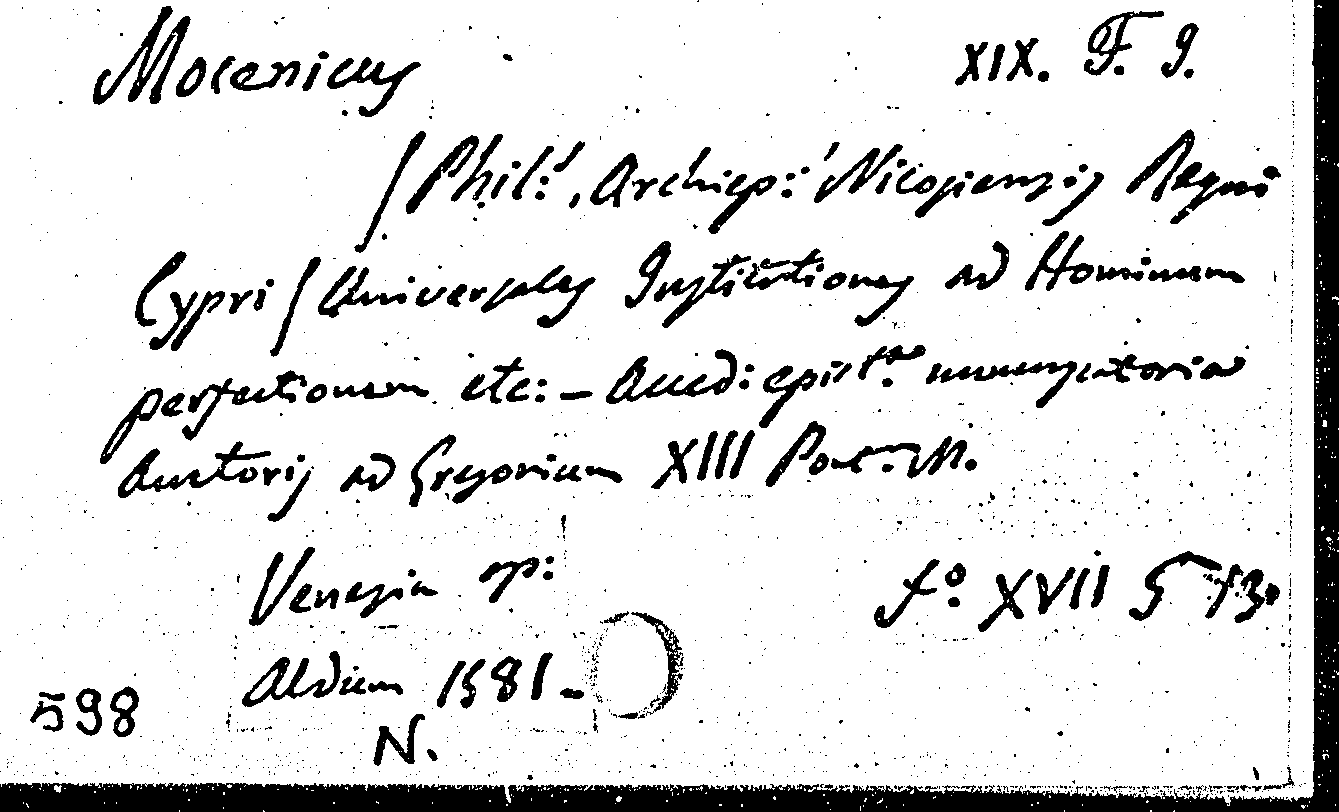 Mocenicus XIX. F. 9.
/Phil:', Archiep:' Nicosiensis Regni
Cypri/ Universales Institutiones ad Hominum
perfectionem etc: – Acced: epist.a nuncupatoria
Auctoris ad Gregorium XIII Pont. M.
Venezia ap:
f.o XVII 5
Aldum 1581 –
598
N.